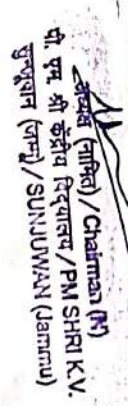 अध्यक्ष (नामित) / Chairman (N)
पी. एम. श्री केंद्रीय विद्यालय / PM SHRI K.V.
सुन्जुवान (जम्मू) / SUNJUWAN (Jammu)